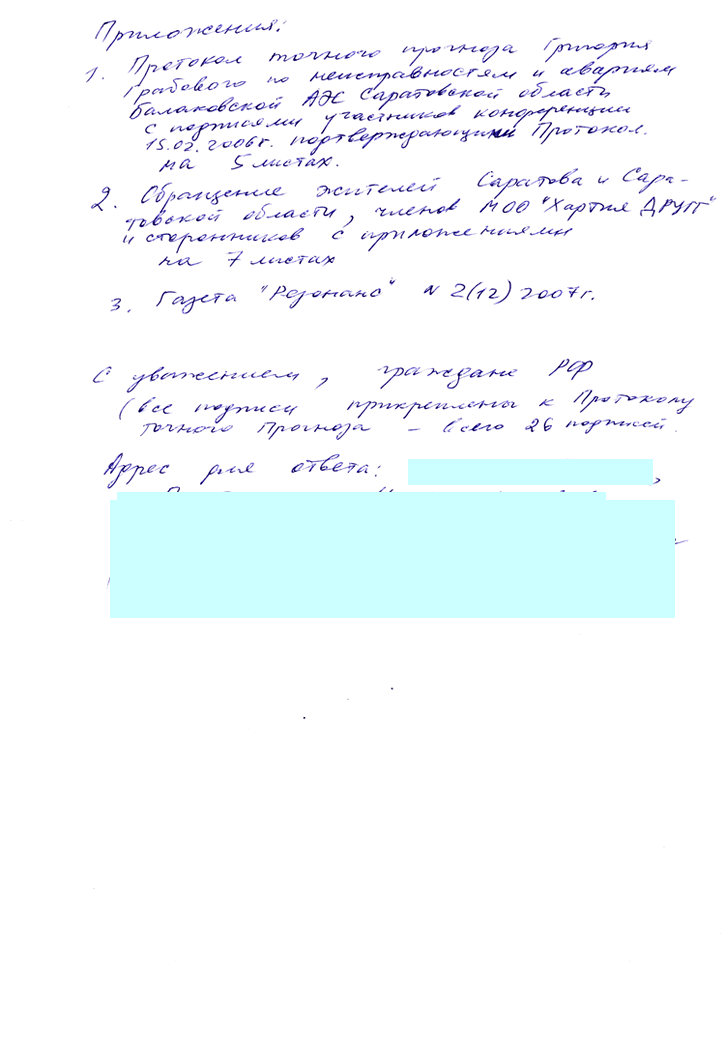 Приложения:
1. Протокол точного прогноза Григория
Грабового по неисправностям и авариям
Балаковской АЭС Саратовской области
с подписями участников конференции
15.02.2006г. подтверждающими Протокол.
на 5 листах.
2. Обращение жителей Саратова и Сара-
товской области, членов МОО "Хартия ДРУГГ"
и сторонников с приложениями
на 7 листах
3. Газета "Резонанс" N 2(12) 2007г.
С уважением, граждане РФ
(все подписи прикреплены к Протоколу
точного Прогноза – всего 26 подписей.
Адрес для ответа: